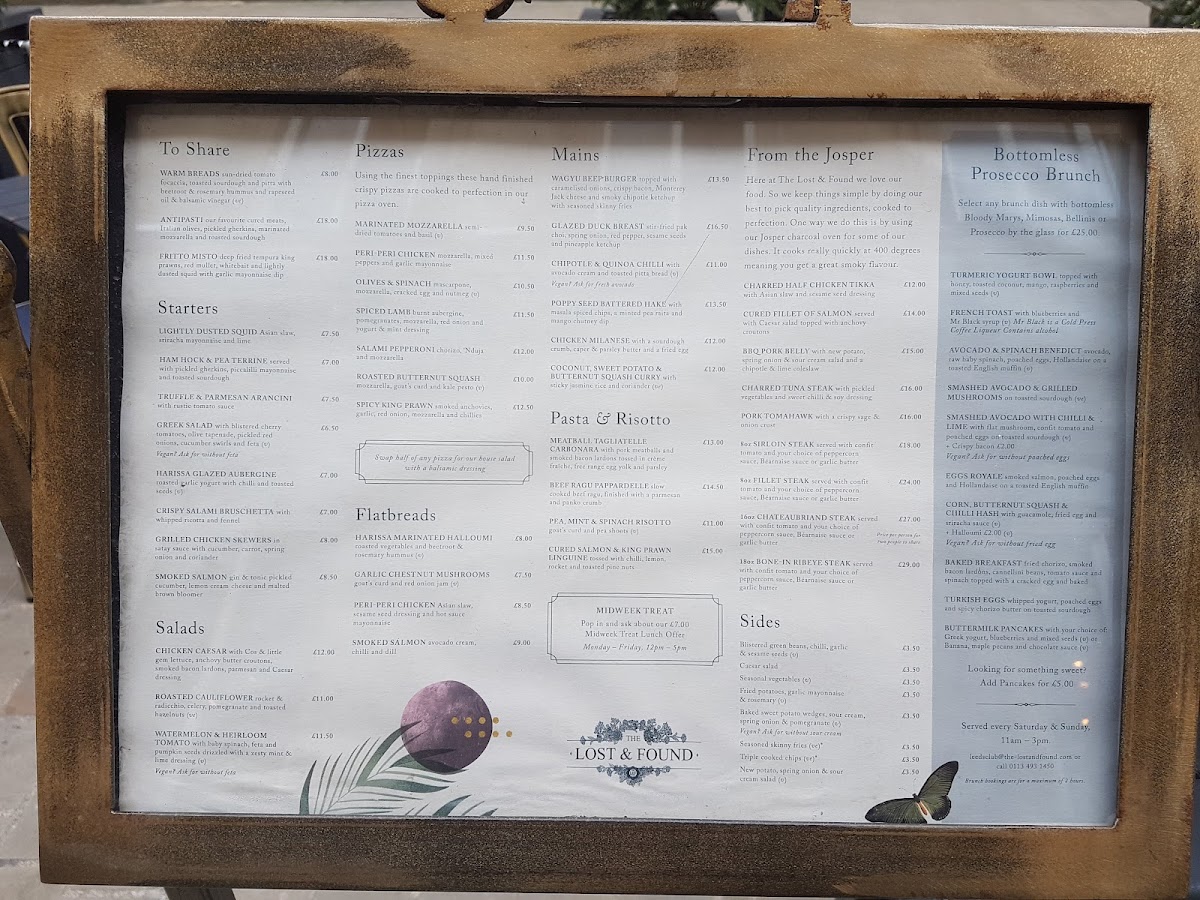 To Share
WARM BREADS sun-dried tomato £8.00
focaccia, toasted sourdough and pitta with
beetroot & rosemary hummus and rapeseed
oil & balsamic vinegar (ve)
ANTIPASTI our favourite cured meats, £18.00
Italian olives, pickled gherkins, marinated
mozzarella and toasted sourdough
FRITTO MISTO deep fried tempura king £18.00
prawns, red mullet, whitebait and lightly
dusted squid with garlic mayonnaise dip
Starters
LIGHTLY DUSTED SQUID Asian slaw, £7.50
sriracha mayonnaise and lime
HAM HOCK & PEA TERRINE served £7.00
with pickled gherkins, piccalilli mayonnaise
and toasted sourdough
TRUFFLE & PARMESAN ARANCINI £7.50
with rustic tomato sauce
GREEK SALAD with blistered cherry £6.50
tomatoes, olive tapenade, pickled red
onions, cucumber swirls and feta (v)
Vegan? Ask for without feta
HARISSA GLAZED AUBERGINE £7.00
toasted garlic yogurt with chilli and toasted
seeds (v)
CRISPY SALAMI BRUSCHETTA with £7.00
whipped ricotta and fennel
GRILLED CHICKEN SKEWERS in £8.00
satay sauce with cucumber, carrot, spring
onion and coriander
SMOKED SALMON gin & tonic pickled £8.50
cucumber, lemon cream cheese and malted
brown bloomer
Salads
CHICKEN CAESAR with Cos & little £12.00
gem lettuce, anchovy butter croutons,
smoked bacon lardons, parmesan and Caesar
dressing
ROASTED CAULIFLOWER rocket & £11.00
radicchio, celery, pomegranate and toasted
hazelnuts (ve)
WATERMELON & HEIRLOOM £11.50
TOMATO with baby spinach, feta and
pumpkin seeds drizzled with a zesty mint &
lime dressing (v)
Vegan? Ask for without feta
Pizzas
Using the finest toppings these hand finished
crispy pizzas are cooked to perfection in our
pizza oven.
MARINATED MOZZARELLA semi- £9.50
dried tomatoes and basil (v)
PERI-PERI CHICKEN mozzarella, mixed £11.50
peppers and garlic mayonnaise
OLIVES & SPINACH mascarpone, £10.50
mozzarella, cracked egg and nutmeg (v)
SPICED LAMB burnt aubergine, £11.50
pomegranates, mozzarella, red onion and
yogurt & mint dressing
SALAMI PEPPERONI chorizo, 'Nduja £12.00
and mozzarella
ROASTED BUTTERNUT SQUASH £10.00
mozzarella, goat's curd and kale pesto (v)
SPICY KING PRAWN smoked anchovies, £12.50
garlic, red onion, mozzarella and chillies
Swap half of any pizza for our house salad
with a balsamic dressing
Flatbreads
HARISSA MARINATED HALLOUMI £8.00
roasted vegetables and beetroot &
rosemary hummus (v)
GARLIC CHESTNUT MUSHROOMS £7.50
goat's curd and red onion jam (v)
PERI-PERI CHICKEN Asian slaw, £8.50
sesame seed dressing and hot sauce
mayonnaise
SMOKED SALMON avocado cream, £9.00
chilli and dill
Mains
WAGYU BEEF BURGER topped with £13.50
caramelised onions, crispy bacon, Monterey
Jack cheese and smoky chipotle ketchup
with seasoned skinny fries
GLAZED DUCK BREAST stir-fried pak £16.50
choi, spring onion, red pepper, sesame seeds
and pineapple ketchup
CHIPOTLE & QUINOA CHILLI with £11.00
avocado cream and toasted pitta bread (v)
Vegan? Ask for fresh avocado
POPPY SEED BATTERED HAKE with £13.50
masala spiced chips, a minted pea puree and
mango chutney dip
CHICKEN MILANESE with a sourdough £12.00
crumb, caper & parsley butter and a fried egg
COCONUT, SWEET POTATO & £12.00
BUTTERNUT SQUASH CURRY with
sticky jasmine rice and coriander (ve)
Pasta & Risotto
MEATBALL TAGLIATELLE £13.00
CARBONARA with pork meatballs and
smoked bacon lardons tossed in crème
fraîche, free range egg yolk and parsley
BEEF RAGU PAPPARDELLE slow £14.50
cooked beef ragu, finished with a parmesan
and panko crumb
PEA, MINT & SPINACH RISOTTO £11.00
goat's curd and pea shoots (v)
CURED SALMON & KING PRAWN £15.00
LINGUINE tossed with chilli, lemon,
rocket and toasted pine nuts
MIDWEEK TREAT
Pop in and ask about our £7.00
Midweek Treat Lunch Offer
Monday – Friday, 12pm – 5pm
THE
LOST & FOUND
From the Josper
Here at The Lost & Found we love our
food. So we keep things simple by doing our
best to pick quality ingredients, cooked to
perfection. One way we do this is by using
our Josper charcoal oven for some of our
dishes. It cooks really quickly at 400 degrees
meaning you get a great smoky flavour.
CHARRED HALF CHICKEN TIKKA £12.00
with Asian slaw and sesame seed dressing
CURED FILLET OF SALMON served £14.00
with Caesar salad topped with anchovy
croutons
BBQ PORK BELLY with new potato, £15.00
spring onion & sour cream salad and a
chipotle & lime coleslaw
CHARRED TUNA STEAK with pickled £16.00
vegetables and sweet chilli & soy dressing
PORK TOMAHAWK with a crispy sage & £16.00
onion crust
8oz SIRLOIN STEAK served with confit £18.00
tomato and your choice of peppercorn
sauce, Béarnaise sauce or garlic butter
8oz FILLET STEAK served with confit £24.00
tomato and your choice of peppercorn
sauce, Béarnaise sauce or garlic butter
16oz CHATEAUBRIAND STEAK served £27.00
with confit tomato and your choice of
peppercorn sauce, Béarnaise sauce or
garlic butter
Price per person for
two people to share
18oz BONE-IN RIBEYE STEAK served £29.00
with confit tomato and your choice of
peppercorn sauce, Béarnaise sauce or
garlic butter
Sides
Blistered green beans, chilli, garlic £3.50
& sesame seeds (v)
Caesar salad £3.50
Seasonal vegetables (v) £3.50
Fried potatoes, garlic mayonnaise £3.50
& rosemary (v)
Baked sweet potato wedges, sour cream, £3.50
spring onion & pomegranate (v)
Vegan? Ask for without sour cream
Seasoned skinny fries (ve)* £3.50
Triple cooked chips (ve)* £3.50
New potato, spring onion & sour £3.50
cream salad (v)
Bottomless
Prosecco Brunch
Select any brunch dish with bottomless
Bloody Marys, Mimosas, Bellinis or
Prosecco by the glass for £25.00
TURMERIC YOGURT BOWL topped with
honey, toasted coconut, mango, raspberries and
mixed seeds (v)
FRENCH TOAST with blueberries and
Mr Black syrup (v) Mr Black is a Cold Press
Coffee Liqueur Contains alcohol
AVOCADO & SPINACH BENEDICT avocado,
raw baby spinach, poached eggs, Hollandaise on a
toasted English muffin (v)
SMASHED AVOCADO & GRILLED
MUSHROOMS on toasted sourdough (ve)
SMASHED AVOCADO WITH CHILLI &
LIME with flat mushroom, confit tomato and
poached eggs on toasted sourdough (v)
+ Crispy bacon £2.00
Vegan? Ask for without poached eggs
EGGS ROYALE smoked salmon, poached eggs
and Hollandaise on a toasted English muffin
CORN, BUTTERNUT SQUASH &
CHILLI HASH with guacamole, fried egg and
sriracha sauce (v)
+ Halloumi £2.00 (v)
Vegan? Ask for without fried egg
BAKED BREAKFAST fried chorizo, smoked
bacon lardons, cannellini beans, tomato sauce and
spinach topped with a cracked egg and baked
TURKISH EGGS whipped yogurt, poached eggs
and spicy chorizo butter on toasted sourdough
BUTTERMILK PANCAKES with your choice of
Greek yogurt, blueberries and mixed seeds (v) or
Banana, maple pecans and chocolate sauce (v)
Looking for something sweet?
Add Pancakes for £5.00
Served every Saturday & Sunday,
11am – 3pm
leedsclub@the-lostandfound.com or
call 0113 493 1450
Brunch bookings are for a maximum of 2 hours